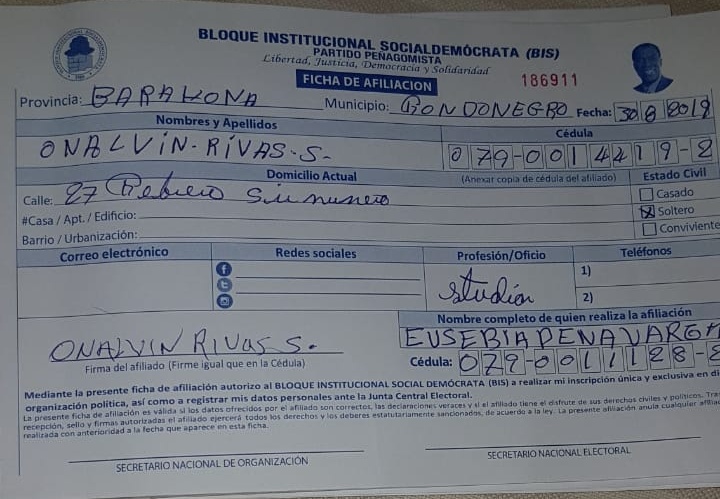 BLOQUE INSTITUCIONAL SOCIALDEMÓCRATA (BIS)
PARTIDO PEÑAGOMISTA
Libertad, Justicia, Democracia y Solidaridad
FICHA DE AFILIACION
186911
Provincia: BARAHONA Municipio: FONDONEGRO Fecha: 30 8 2019
Nombres y Apellidos Cédula
ONALVIN-RIVAS-S. 079-0014419-8
Domicilio Actual (Anexar copia de cédula del afiliado) Estado Civil
Calle: 27 Febrero Sin numero
Casado
#Casa / Apt. / Edificio:
Soltero
Barrio / Urbanización:
Conviviente
Correo electrónico Redes sociales Profesión/Oficio Teléfonos
1)
studian
2)
Nombre completo de quien realiza la afiliación
ONALVIN RIVAS S. EUSEBIA PENA VARGA
Firma del afiliado (Firme igual que en la Cédula) Cédula: 079-0011128-8
Mediante la presente ficha de afiliación autorizo al BLOQUE INSTITUCIONAL SOCIAL DEMÓCRATA (BIS) a realizar mi inscripción única y exclusiva en
organización política, así como a registrar mis datos personales ante la Junta Central Electoral.
La presente ficha de afiliación es válida si los datos ofrecidos por el afiliado son correctos, las declaraciones veraces y si el afiliado tiene el disfrute de sus derechos civiles y políticos.
recepción, sello y firmas autorizadas el afiliado ejercerá todos los derechos y los deberes estatutariamente sancionados, de acuerdo a la ley. La presente afiliación anula cualquier
realizada con anterioridad a la fecha que aparece en esta ficha.
SECRETARIO NACIONAL DE ORGANIZACIÓN SECRETARIO NACIONAL ELECTORAL